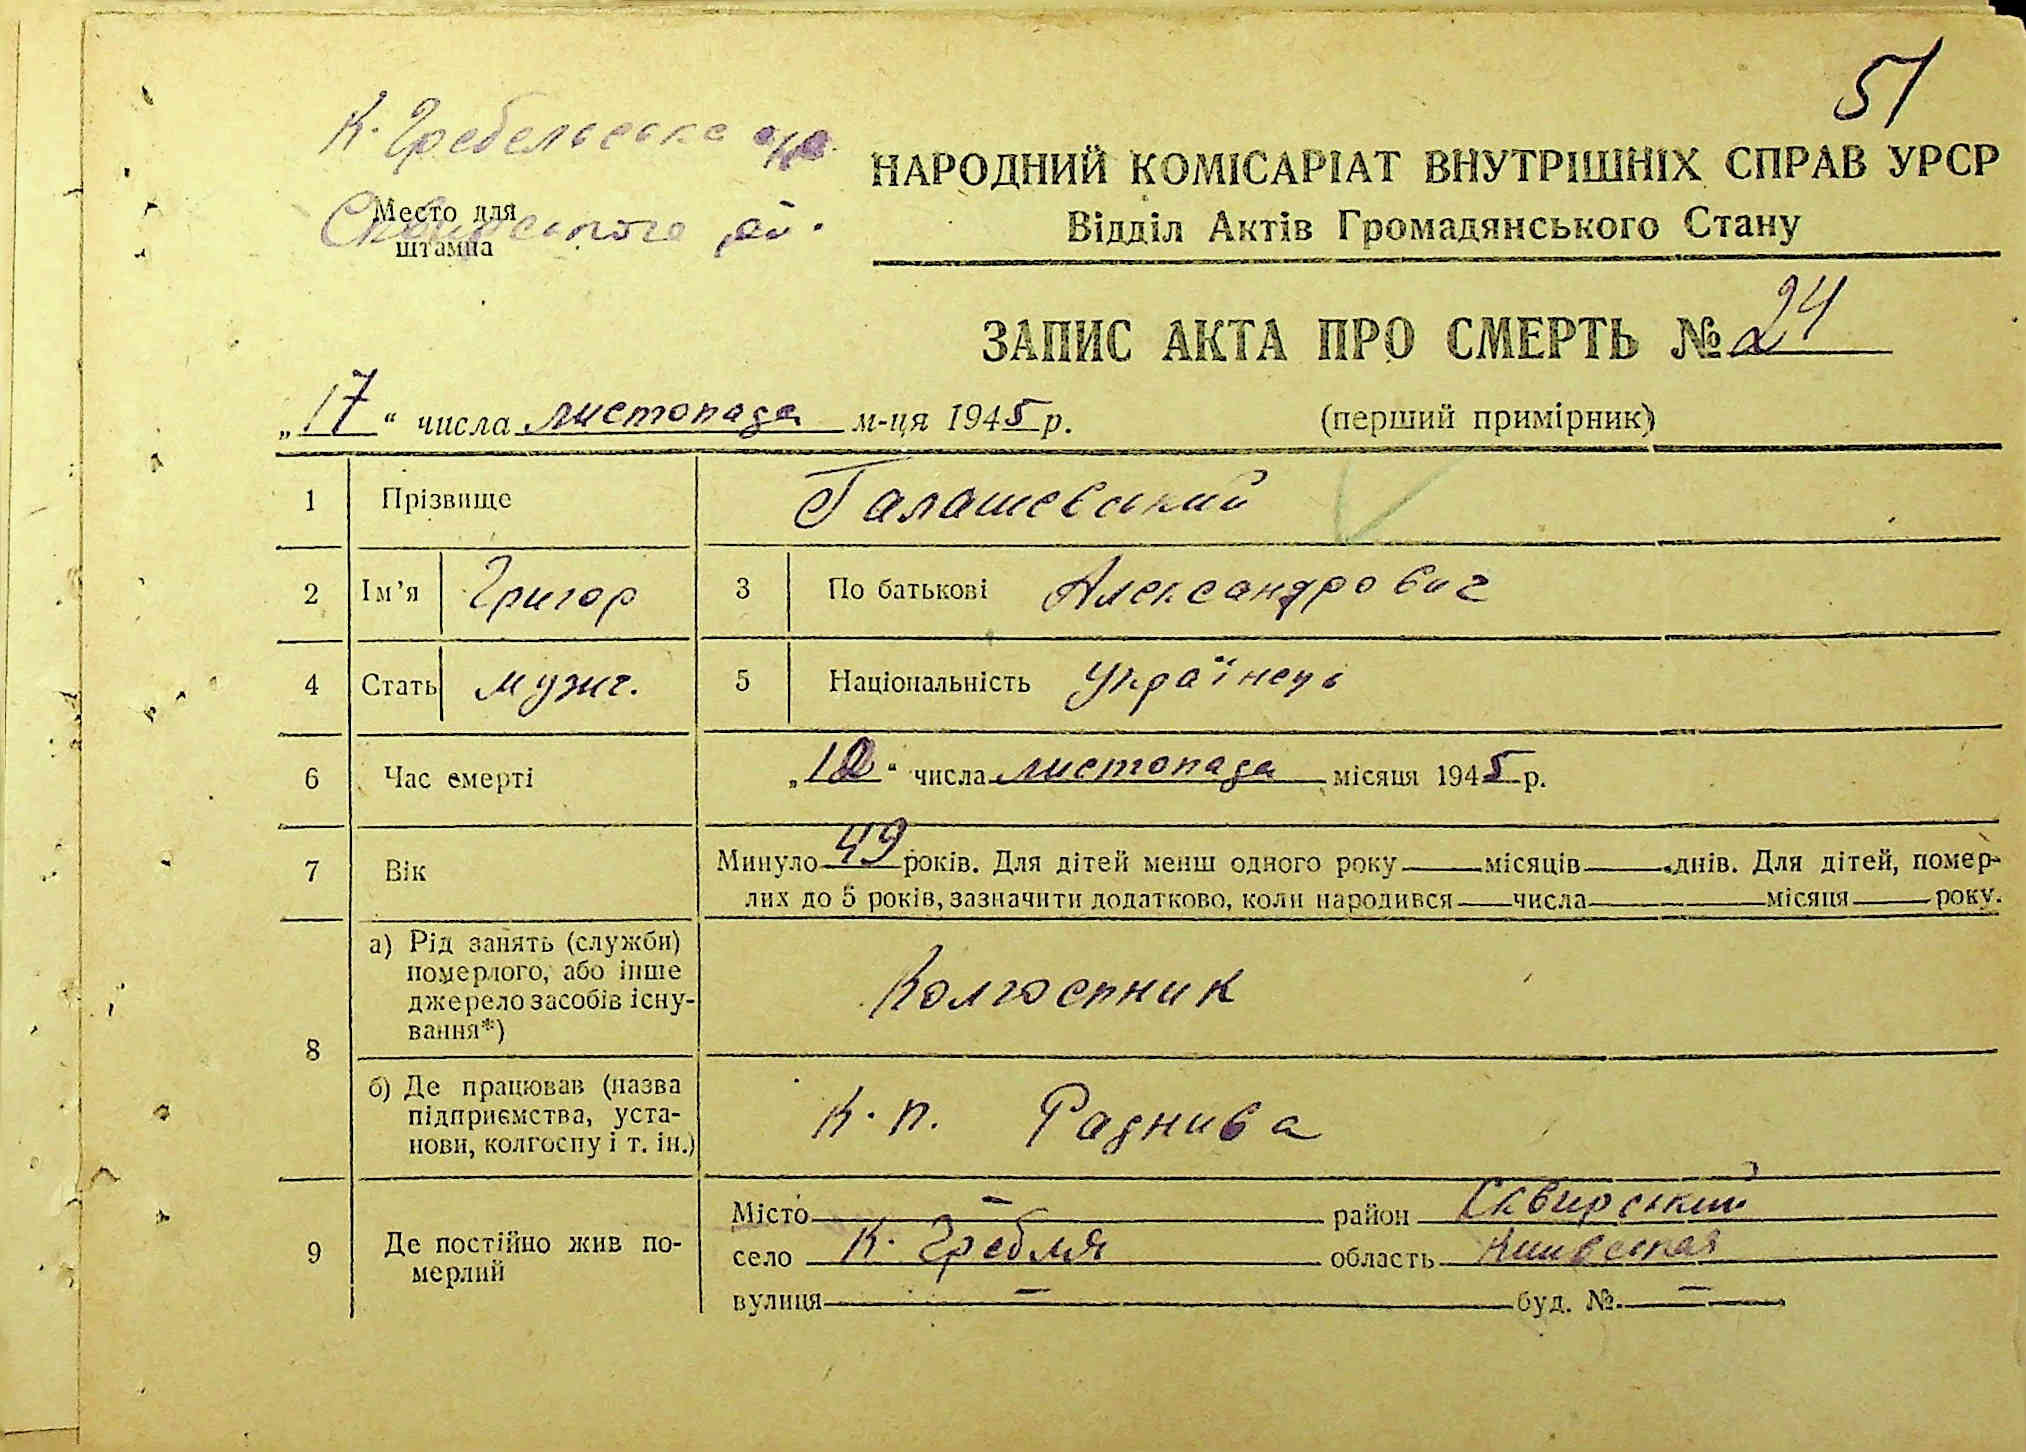 51
К. Гребельське с/р
НАРОДНИЙ КОМІСАРІАТ ВНУТРІШНІХ СПРАВ УРСР
Место для
штампа
Сквирского рай.
Відділ Актів Громадянського Стану
ЗАПИС АКТА ПРО СМЕРТЬ № 24
„17“ числа листопада м-ця 1945 р. (перший примірник)
1 Прізвище Галашевський
2 Ім’я Григор 3 По батькові Александрович
4 Стать мужч. 5 Національність Українець
6 Час смерті „12“ числа листопада місяця 1945 р.
7 Вік Минуло 49 років. Для дітей менш одного року місяців днів. Для дітей, помер-
лих до 5 років, зазначити додатково, коли народився числа місяця року.
8 а) Рід занять (служби)
померлого, або інше
джерело засобів існу-
вання*) Колгоспник
б) Де працював (назва
підприємства, уста-
нови, колгоспу і т. ін.) к. п. Раднива
9 Де постійно жив по-
мерлий
Місто — район Сквирський
село К. Гребля область Киивская
вулиця — буд. № —